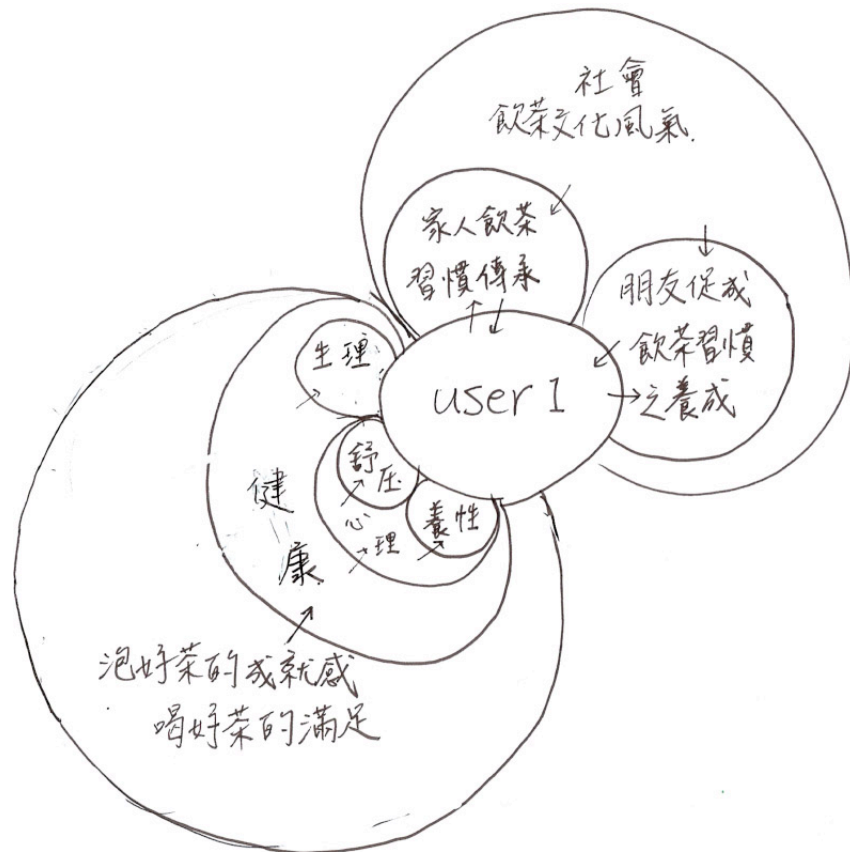 社會
飲茶文化風氣
家人飲茶
習慣傳承
朋友促成
飲茶習慣
之養成
user 1
生理
舒
压
養性
心
理
健
康
泡好茶的成就感
喝好茶的滿足